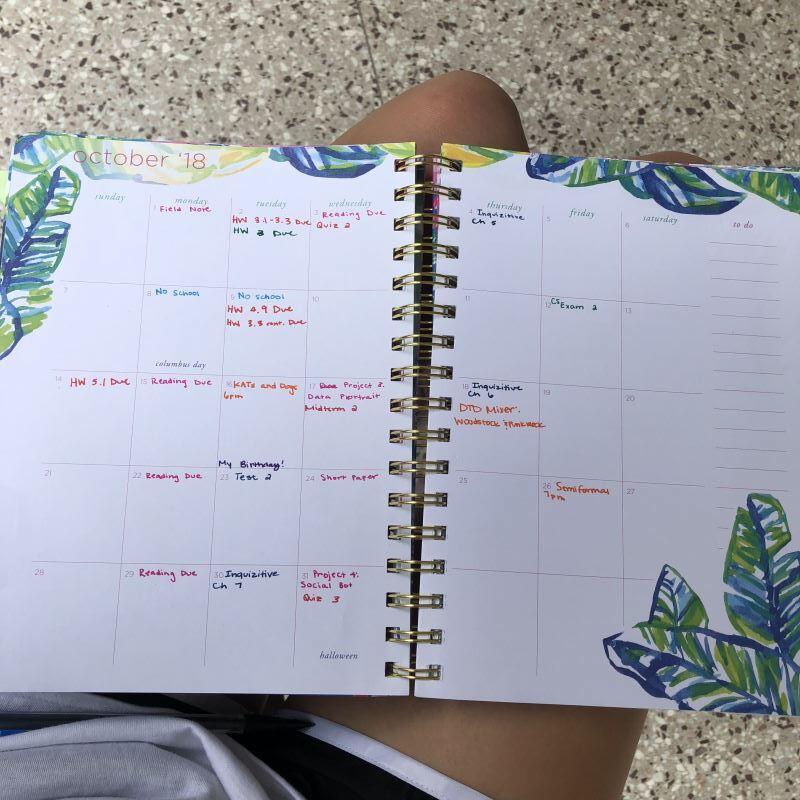 october '18
sunday
monday
tuesday
wednesday
thursday
friday
saturday
to do
1 Field Note
2
HW 3.1-3.3 Due
HW 3 Due
3 Reading Due
Quiz 2
4 Inquizitive
Ch 5
5
6
7
8 No School
columbus day
9 No School
HW 4.9 Due
HW 3.3 cont. Due
10
11
12 CS Exam 2
13
14 HW 5.1 Due
15 Reading Due
16 KATs and Dogs
6pm
17 Project 3:
Data Portrait
Midterm 2
18 Inquizitive
Ch 6
DTD Mixer:
Woodstock & Punk Rock
19
20
21
22 Reading Due
My Birthday!
23 Test 2
24 Short Paper
25
26 Semiformal
7pm
27
28
29 Reading Due
30 Inquizitive
Ch 7
31 Project 4:
Social Bot
Quiz 3
halloween